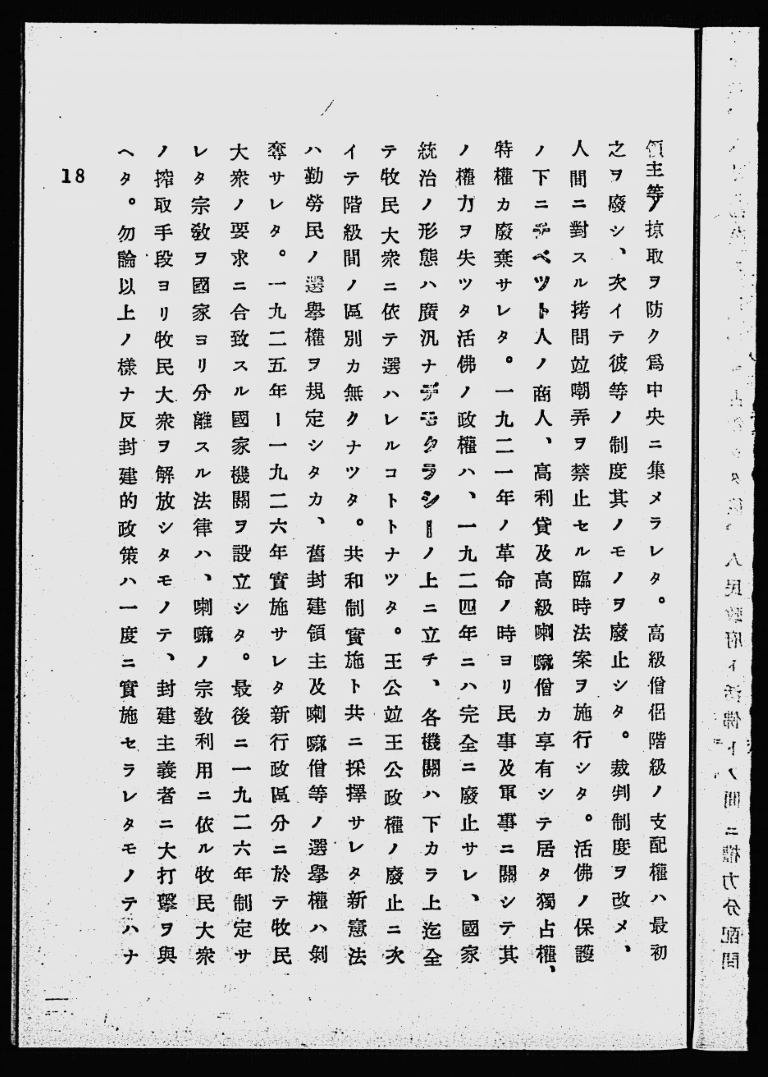 領主等ノ掠取ヲ防ク爲中央ニ集メラレタ。高級僧侶階級ノ支配權ハ最初
之ヲ廢シ、次イテ彼等ノ制度其ノモノヲ廢止シタ。裁判制度ヲ改メ、
人間ニ對スル拷問竝嘲弄ヲ禁止セル臨時法案ヲ施行シタ。活佛ノ保護
ノ下ニチベツト人ノ商人、高利貸及高級喇嘛僧カ享有シテ居タ獨占權、
特權カ廢棄サレタ。一九二一年ノ革命ノ時ヨリ民事及軍事ニ關シテ其
ノ權力ヲ失ツタ活佛ノ政權ハ、一九二四年ニハ完全ニ廢止サレ、國家
統治ノ形態ハ廣汎ナデモクラシーノ上ニ立チ、各機關ハ下カラ上迄全
テ牧民大衆ニ依テ選ハレルコトトナツタ。王公竝王公政權ノ廢止ニ次
イテ階級間ノ區別カ無クナツタ。共和制實施ト共ニ採擇サレタ新憲法
ハ勤勞民ノ選擧權ヲ規定シタカ、舊封建領主及喇嘛僧等ノ選擧權ハ剝
奪サレタ。一九二五年ー一九二六年實施サレタ新行政區分ニ於テ牧民
大衆ノ要求ニ合致スル國家機關ヲ設立シタ。最後ニ一九二六年制定サ
レタ宗敎ヲ國家ヨリ分離スル法律ハ、喇嘛ノ宗敎利用ニ依ル牧民大衆
ノ搾取手段ヨリ牧民大衆ヲ解放シタモノテ、封建主義者ニ大打擊ヲ與
ヘタ。勿論以上ノ樣ナ反封建的政策ハ一度ニ實施セラレタモノテハナ
18